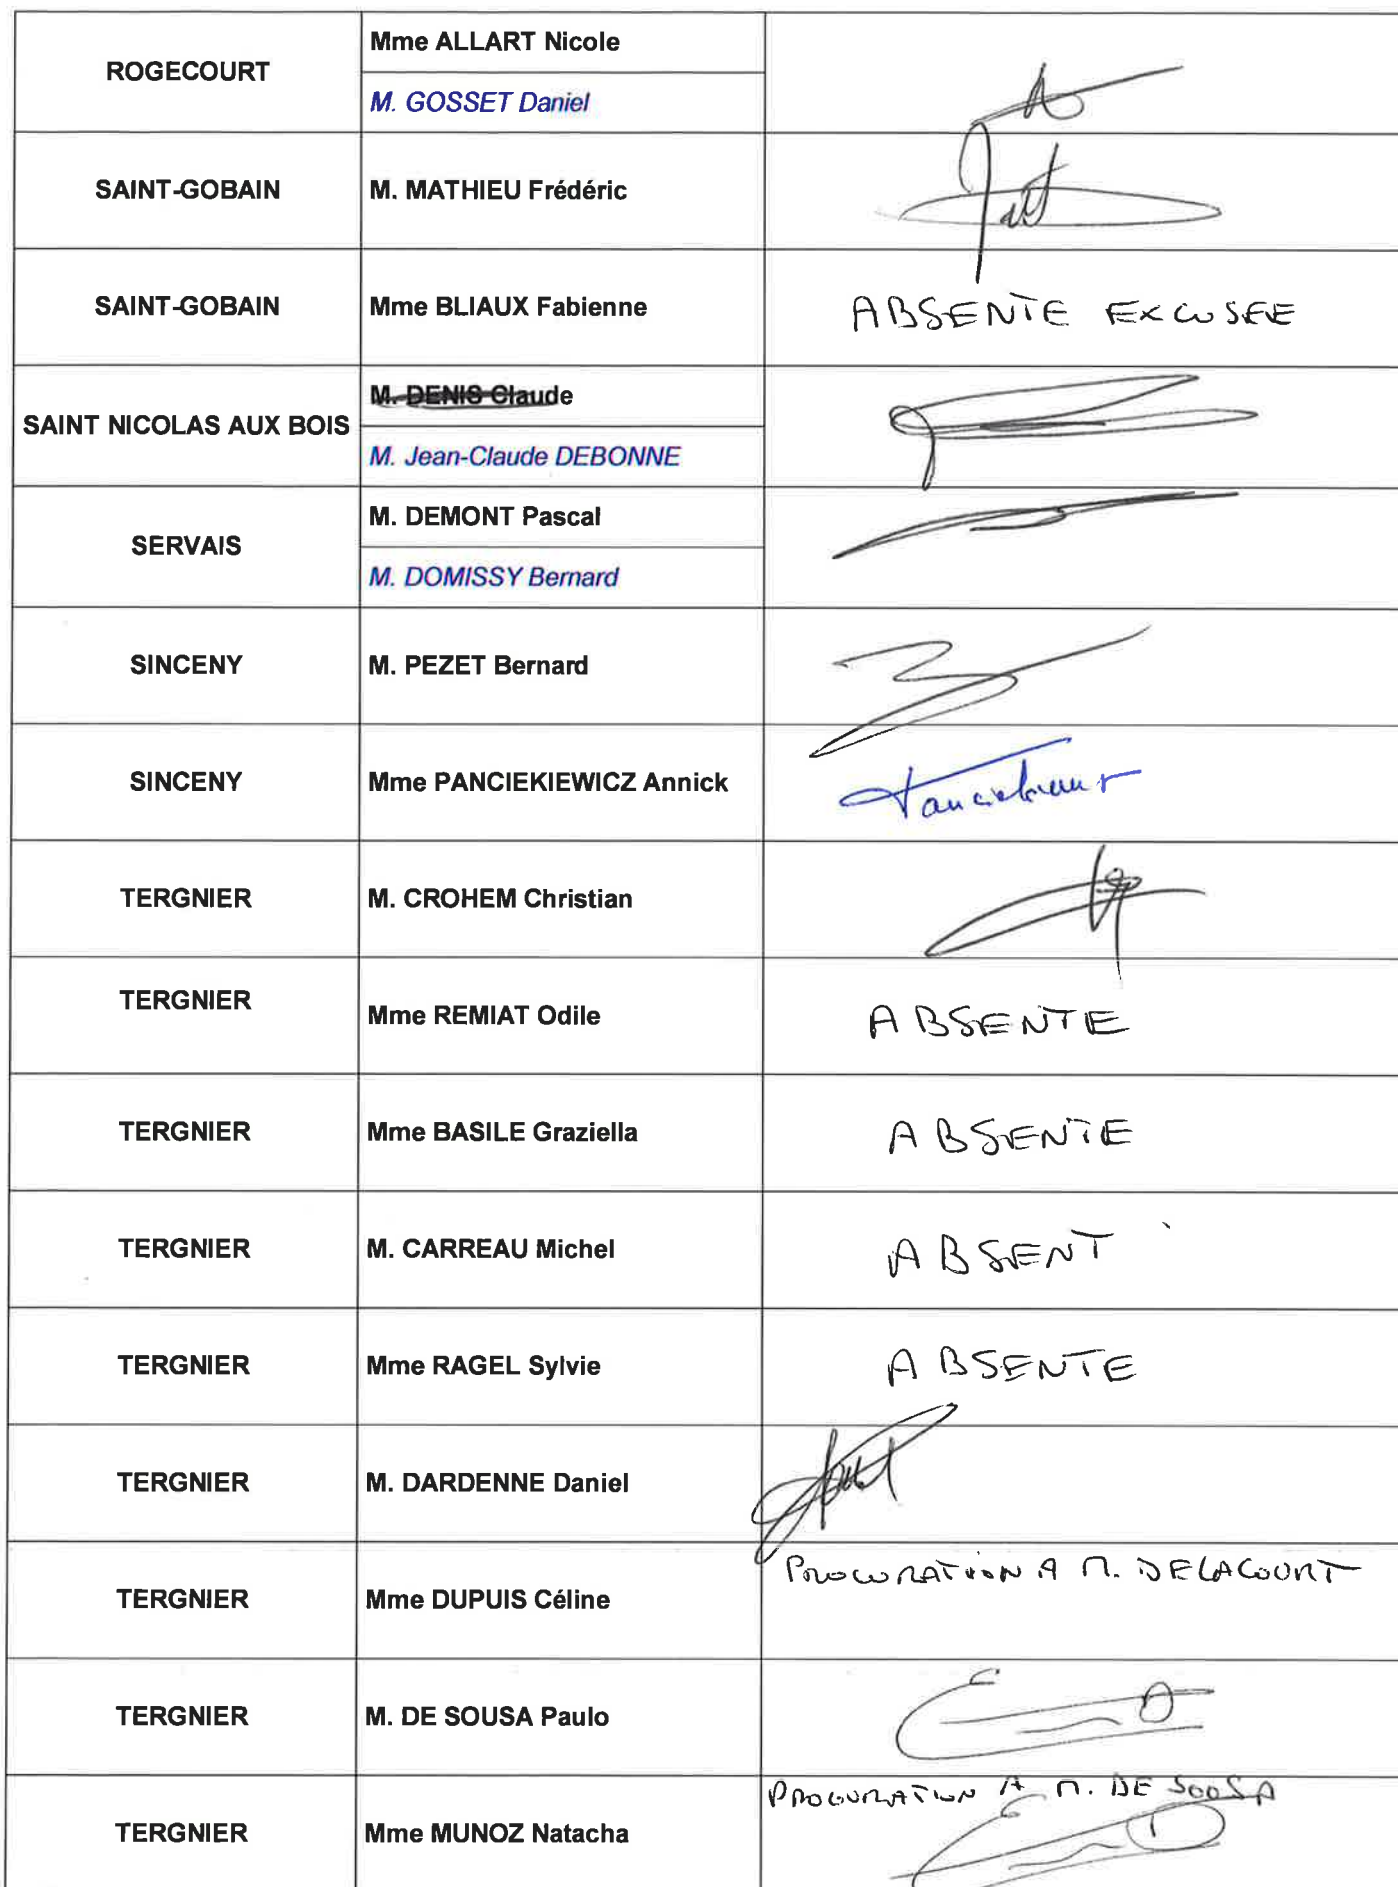 ROGECOURT
Mme ALLART Nicole
M. GOSSET Daniel
SAINT-GOBAIN
M. MATHIEU Frédéric
SAINT-GOBAIN
Mme BLIAUX Fabienne
ABSENTE EXCUSEE
SAINT NICOLAS AUX BOIS
M. DENIS Claude
M. Jean-Claude DEBONNE
SERVAIS
M. DEMONT Pascal
M. DOMISSY Bernard
SINCENY
M. PEZET Bernard
SINCENY
Mme PANCIEKIEWICZ Annick
TERGNIER
M. CROHEM Christian
TERGNIER
Mme REMIAT Odile
ABSENTE
TERGNIER
Mme BASILE Graziella
ABSENTE
TERGNIER
M. CARREAU Michel
ABSENT
TERGNIER
Mme RAGEL Sylvie
ABSENTE
TERGNIER
M. DARDENNE Daniel
TERGNIER
Mme DUPUIS Céline
PROCURATION A M. DELACOURT
TERGNIER
M. DE SOUSA Paulo
TERGNIER
Mme MUNOZ Natacha
PROCURATION A M. DE SOUSA